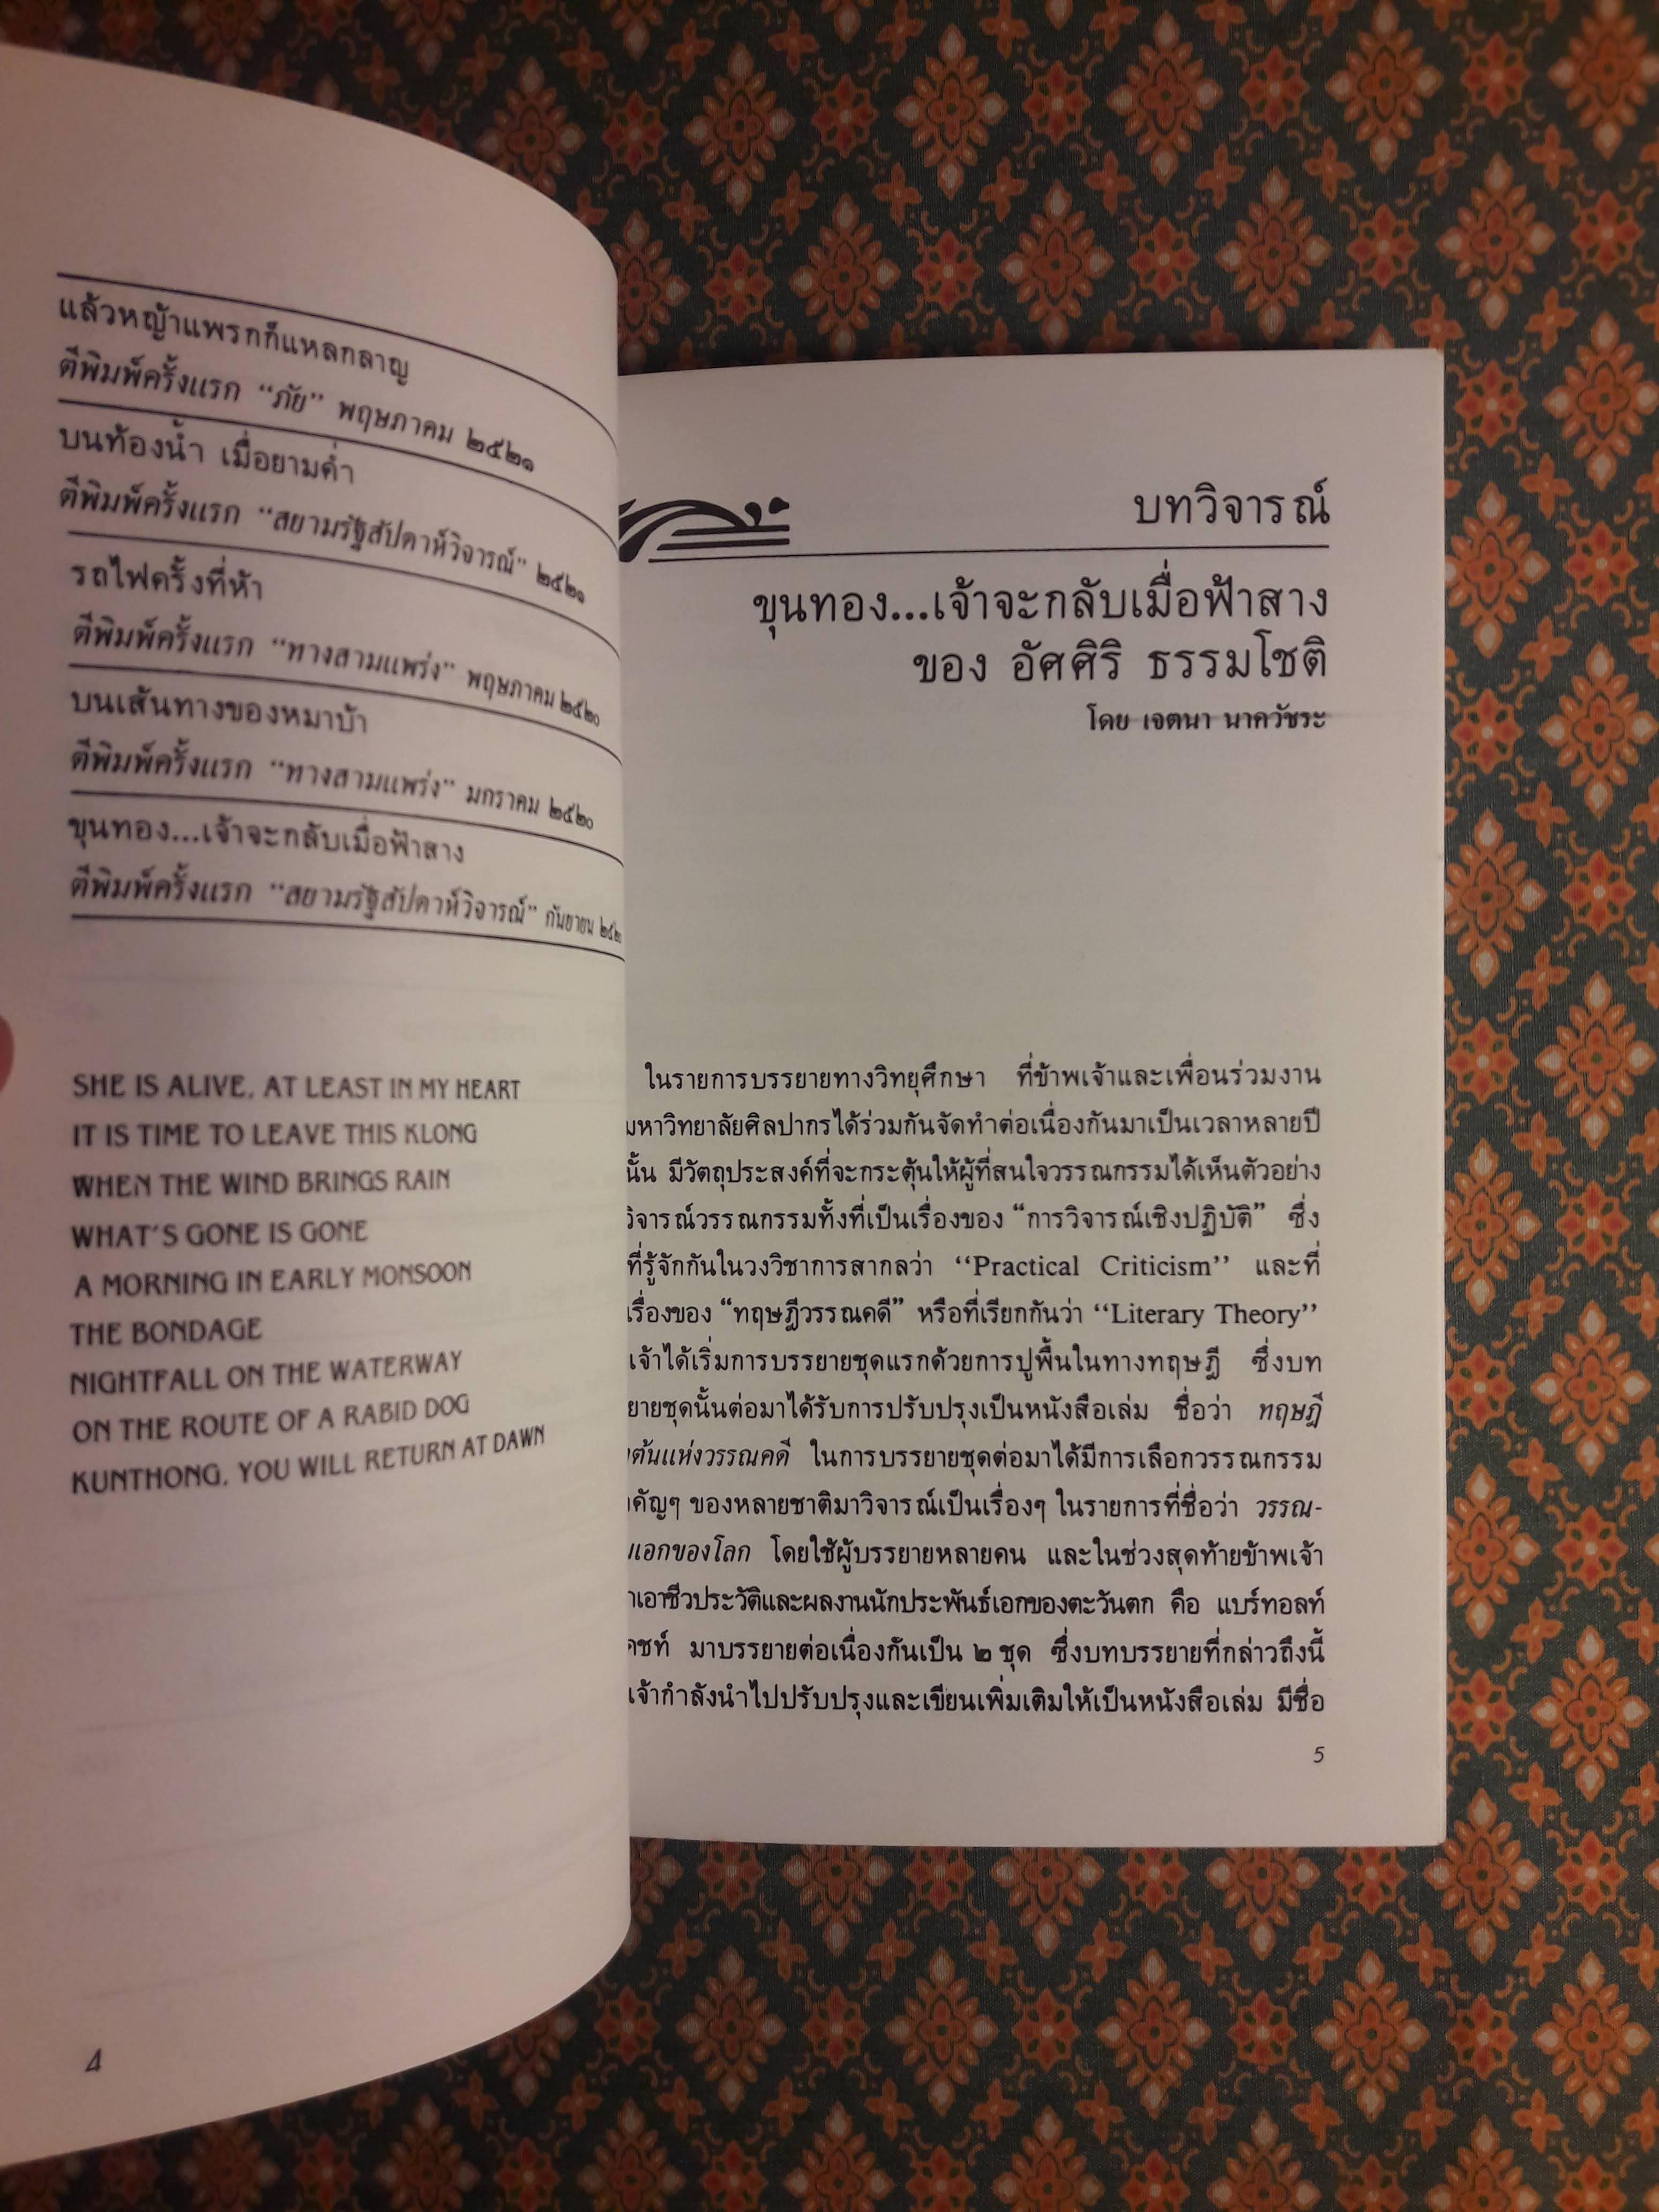 แล้วหญ้าแพรกก็แหลกลาญ
ตีพิมพ์ครั้งแรก “ภัย” พฤษภาคม ๒๕๒๑
บนท้องน้ำ เมื่อยามค่ำ
ตีพิมพ์ครั้งแรก “สยามรัฐสัปดาห์วิจารณ์” ๒๕๒๑
รถไฟครั้งที่ห้า
ตีพิมพ์ครั้งแรก “ทางสามแพร่ง” พฤษภาคม ๒๕๒๐
บนเส้นทางของหมาบ้า
ตีพิมพ์ครั้งแรก “ทางสามแพร่ง” มกราคม ๒๕๒๐
ขุนทอง...เจ้าจะกลับเมื่อฟ้าสาง
ตีพิมพ์ครั้งแรก “สยามรัฐสัปดาห์วิจารณ์” กันยายน
SHE IS ALIVE, AT LEAST IN MY HEART
IT IS TIME TO LEAVE THIS KLONG
WHEN THE WIND BRINGS RAIN
WHAT'S GONE IS GONE
A MORNING IN EARLY MONSOON
THE BONDAGE
NIGHTFALL ON THE WATERWAY
ON THE ROUTE OF A RABID DOG
KUNTHONG, YOU WILL RETURN AT DAWN
4
บทวิจารณ์
ขุนทอง...เจ้าจะกลับเมื่อฟ้าสาง
ของ อัศศิริ ธรรมโชติ
โดย เจตนา นาควัชระ
ในรายการบรรยายทางวิทยุศึกษา ที่ข้าพเจ้าและเพื่อนร่วมงาน
มหาวิทยาลัยศิลปากรได้ร่วมกันจัดทำต่อเนื่องกันมาเป็นเวลาหลายปี
นั้น มีวัตถุประสงค์ที่จะกระตุ้นให้ผู้ที่สนใจวรรณกรรมได้เห็นตัวอย่าง
วิจารณ์วรรณกรรมทั้งที่เป็นเรื่องของ “การวิจารณ์เชิงปฏิบัติ” ซึ่ง
ที่รู้จักกันในวงวิชาการสากลว่า “Practical Criticism” และที่
เรื่องของ “ทฤษฎีวรรณคดี” หรือที่เรียกกันว่า “Literary Theory”
เจ้าได้เริ่มการบรรยายชุดแรกด้วยการปูพื้นในทางทฤษฎี ซึ่งบท
ยายชุดนั้นต่อมาได้รับการปรับปรุงเป็นหนังสือเล่ม ชื่อว่า ทฤษฎี
ต้นแห่งวรรณคดี ในการบรรยายชุดต่อมาได้มีการเลือกวรรณกรรม
คัญๆ ของหลายชาติมาวิจารณ์เป็นเรื่องๆ ในรายการที่ชื่อว่า วรรณ-
เอกของโลก โดยใช้ผู้บรรยายหลายคน และในช่วงสุดท้ายข้าพเจ้า
เอาชีวประวัติและผลงานนักประพันธ์เอกของตะวันตก คือ แบร์ทอลท์
คชท์ มาบรรยายต่อเนื่องกันเป็น ๒ ชุด ซึ่งบทบรรยายที่กล่าวถึงนี้
เจ้ากำลังนำไปปรับปรุงและเขียนเพิ่มเติมให้เป็นหนังสือเล่ม มีชื่อ
5